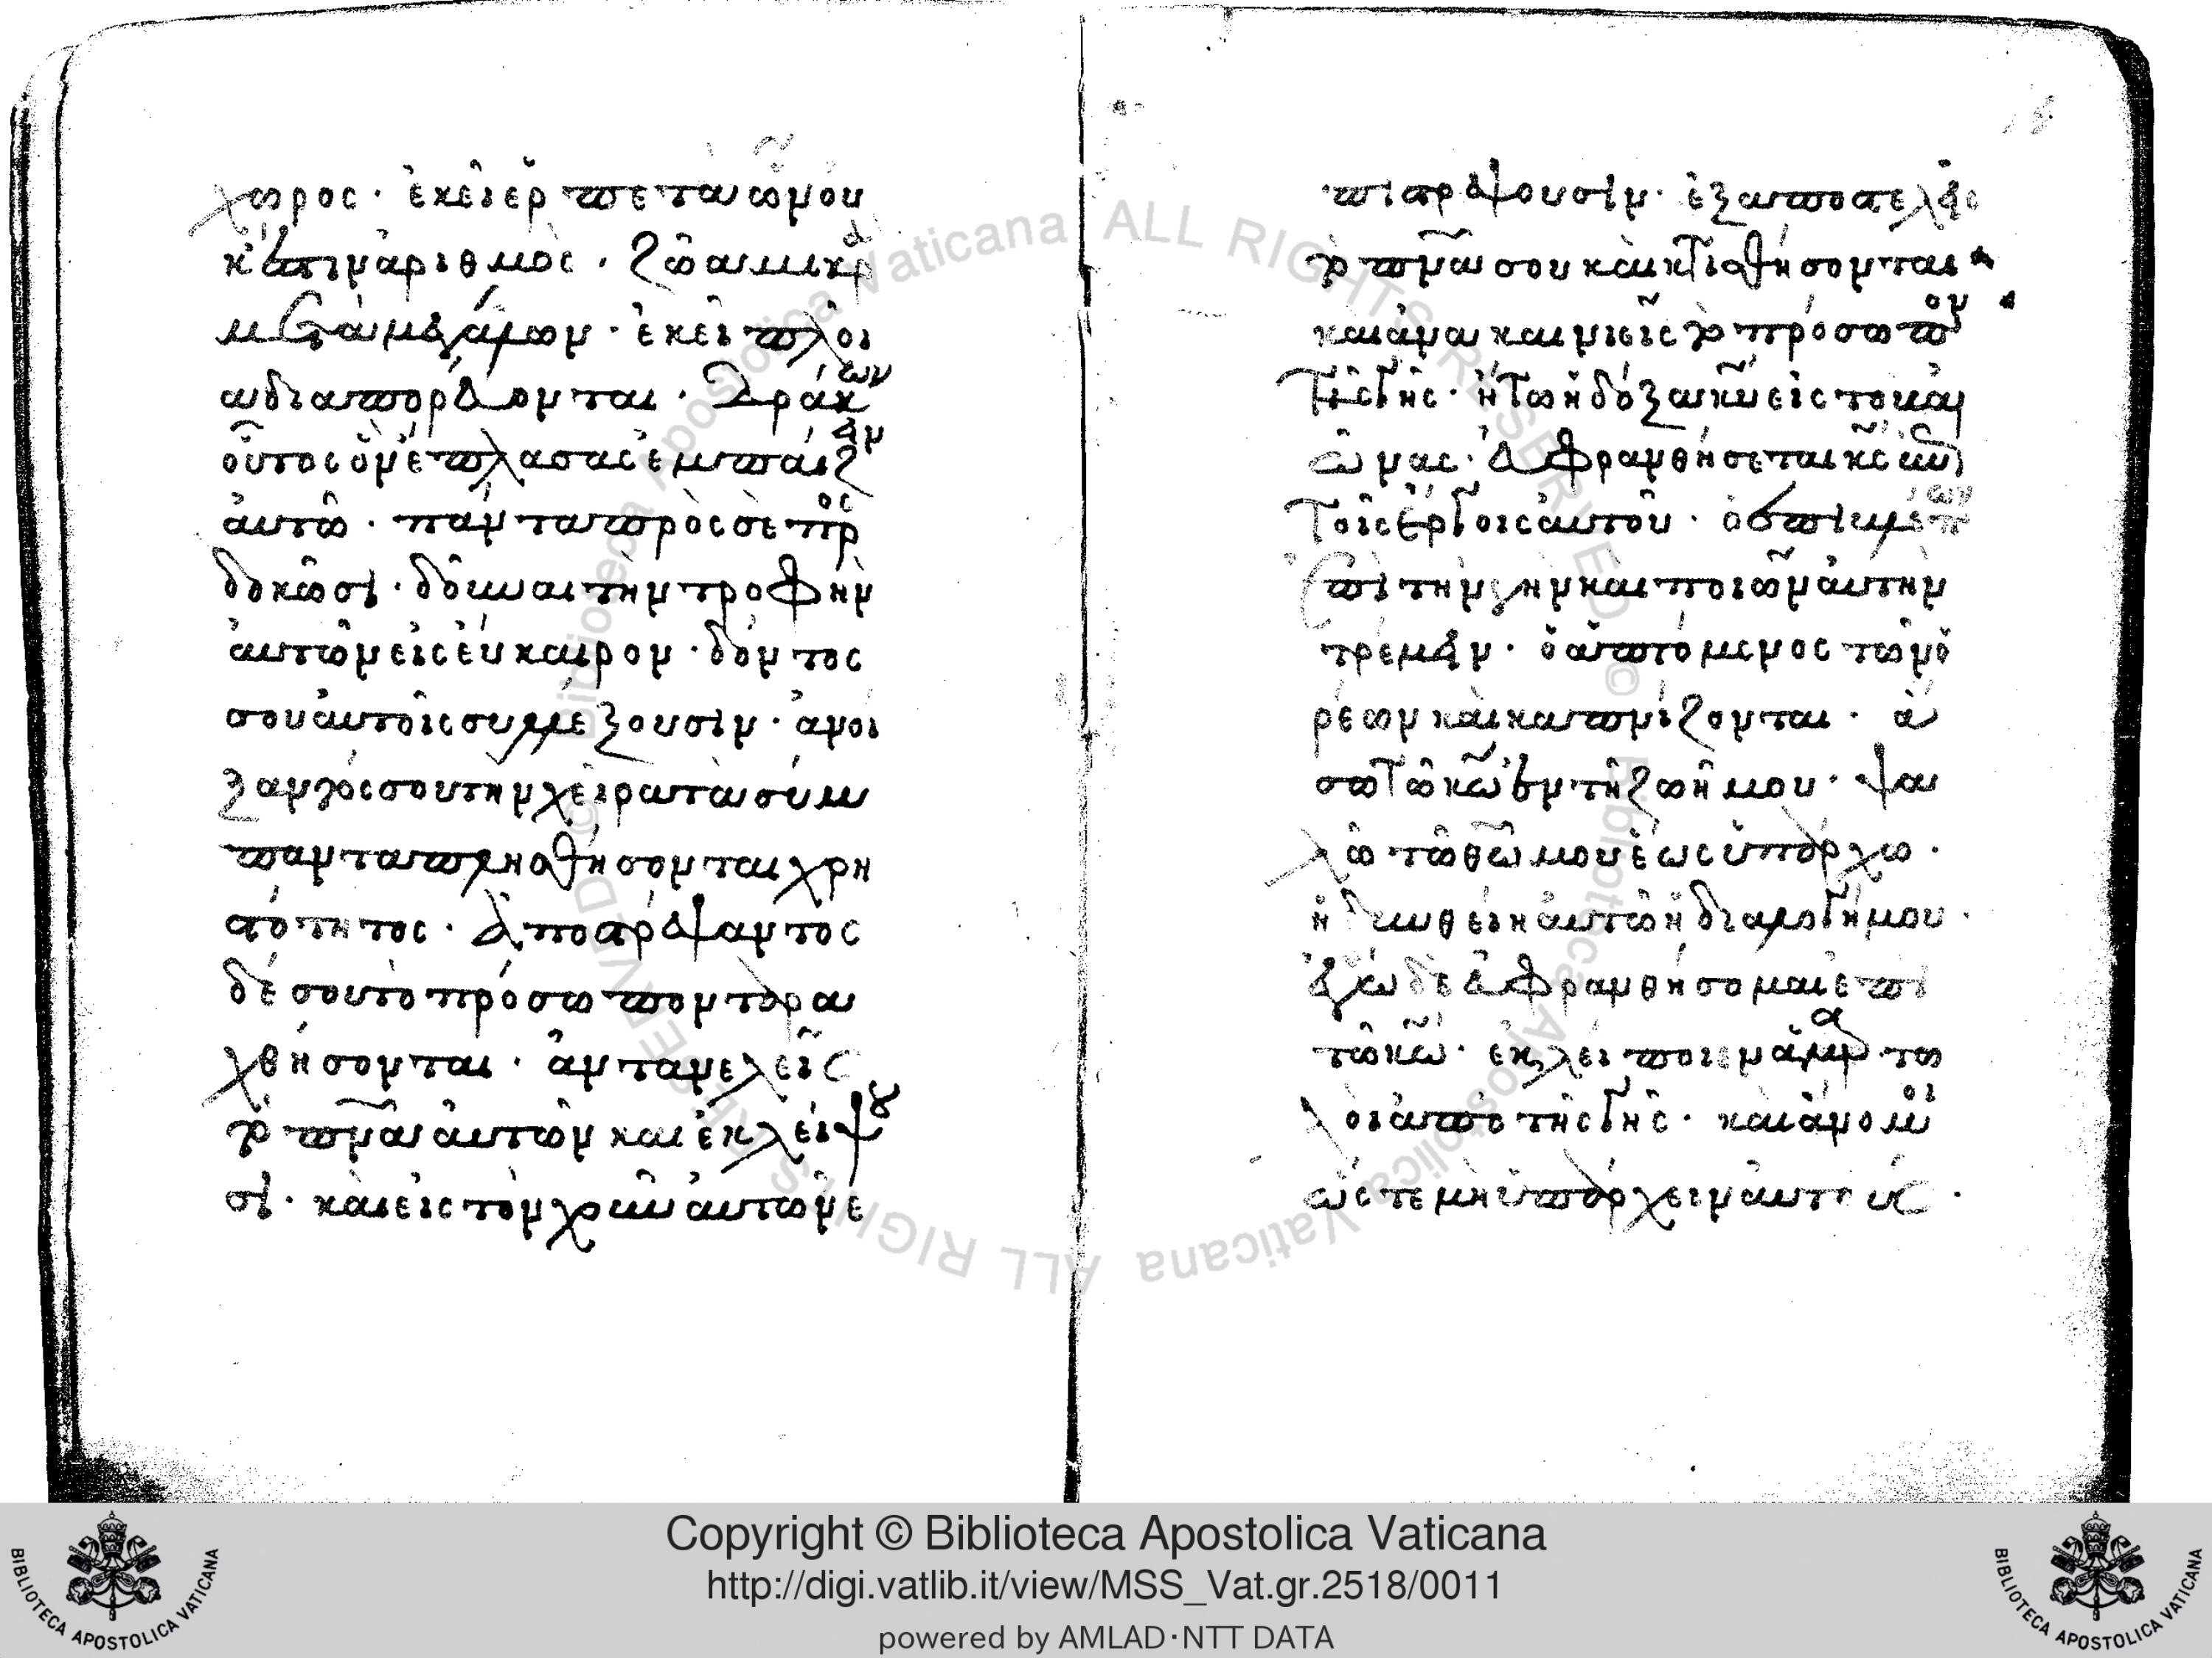 χωρος · ἐκεῖ ἑρπετὰ ὧν οὐ
κ ἔστιν ἀριθμὸς · ζῶα μικρὰ
μετὰ μεγάλων · ἐκεῖ πλοῖ
α διαπορεύονται · δράκων
οὗτος ὃν ἔπλασας ἐμπαίζειν
αὐτῶ · πάντα πρὸς σὲ προσ
δοκῶσι · δοῦναι τὴν τροφὴν
αὐτῶν εἰς εὔκαιρον · δόντος
σου αὐτοῖς συλλέξουσιν · ἀνοί
ξαντός σου τὴν χεῖρα τὰ σύμ
παντα πλησθήσονται χρη
στότητος · ἀποστρέψαντος
δέ σου τὸ πρόσωπον ταρα
χθήσονται · ἀντανελεῖς
τὸ πνᾶ αὐτῶν καὶ ἐκλείψου
σι · καὶ εἰς τὸν χοῦν αὐτῶν ἐ
πιστρέψουσιν · ἐξαποστελεῖς
τὸ πνᾶ σου καὶ κτισθήσονται
καὶ ἀνακαινιεῖς τὸ πρόσωπον
τῆς γῆς · ἤτω ἡ δόξα κυ εἰς τοὺς αἰ
ῶνας · εὐφρανθήσεται κς ἐπὶ
τοῖς ἔργοις αὐτοῦ · ὁ ἐπιβλέπων
ἐπὶ τὴν γῆν καὶ ποιῶν αὐτὴν
τρέμειν · ὁ ἁπτόμενος τῶν ὀ
ρέων καὶ καπνίζονται · ἄ
σω τῶ κω ἐν τῆ ζωῆ μου · ψα
λῶ τῶ θω μου ἕως ὑπάρχω ·
ἡδυνθείη αὐτῶ ἡ διαλογή μου ·
ἐγὼ δὲ εὐφρανθήσομαι ἐπὶ
τῶ κω · ἐκλείποιεν ἁμαρτω
λοὶ ἀπὸ τῆς γῆς · καὶ ἄνομοι
ὥστε μὴ ὑπάρχειν αὐτούς ·
Copyright © Biblioteca Apostolica Vaticana
http://digi.vatlib.it/view/MSS_Vat.gr.2518/0011
powered by AMLAD·NTT DATA
BIBLIOTECA APOSTOLICA VATICANA
BIBLIOTECA APOSTOLICA VATICANA